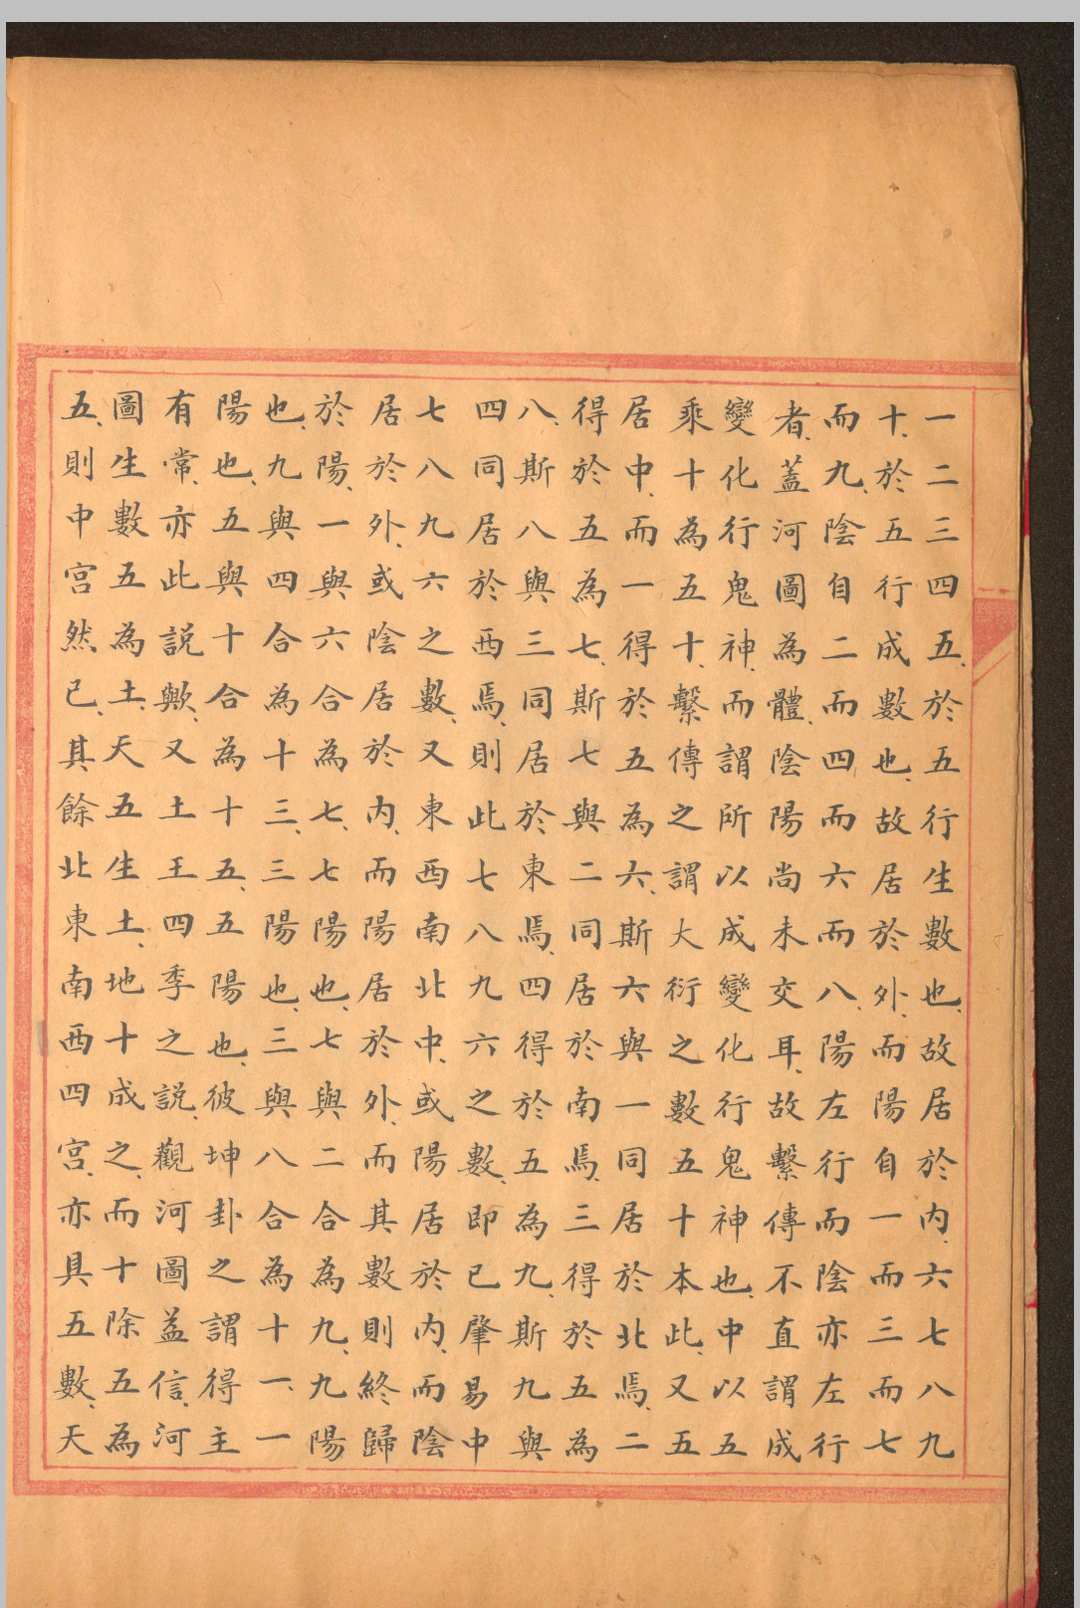 一二三四五、於五行生數也、故居於内、六七八九
十、於五行成數也、故居於外、而陽自一而三而七
而九、陰自二而四而六而八、陽左行而陰亦左行
者、蓋河圖為體、陰陽尚未交耳、故繫傳不直謂成
變化行鬼神、而謂所以成變化行鬼神也、中以五
乘十為五十、繫傳之謂大衍之數五十本此、又五
居中、而一得於五為六、斯六與一同居於北焉、二
得於五為七、斯七與二同居於南焉、三得於五為
八、斯八與三同居於東焉、四得於五為九、斯九與
四同居於西焉、則此七八九六之數、即已肇易中
七八九六之數、又東西南北中、或陽居於内、而陰
居於外、或陰居於内、而陽居於外、而其數則終歸
於陽、一與六合為七、七陽也、七與二合為九、九陽
也、九與四合為十三、三陽也、三與八合為十一、一
陽也、五與十合為十五、五陽也、彼坤卦之謂得主
有常、亦此説歟、又土王四季之説、觀河圖益信、河
圖生數五為土、天五生土、地十成之、而十除五為
五、則中宮然已、其餘北東南西四宮、亦具五數、天